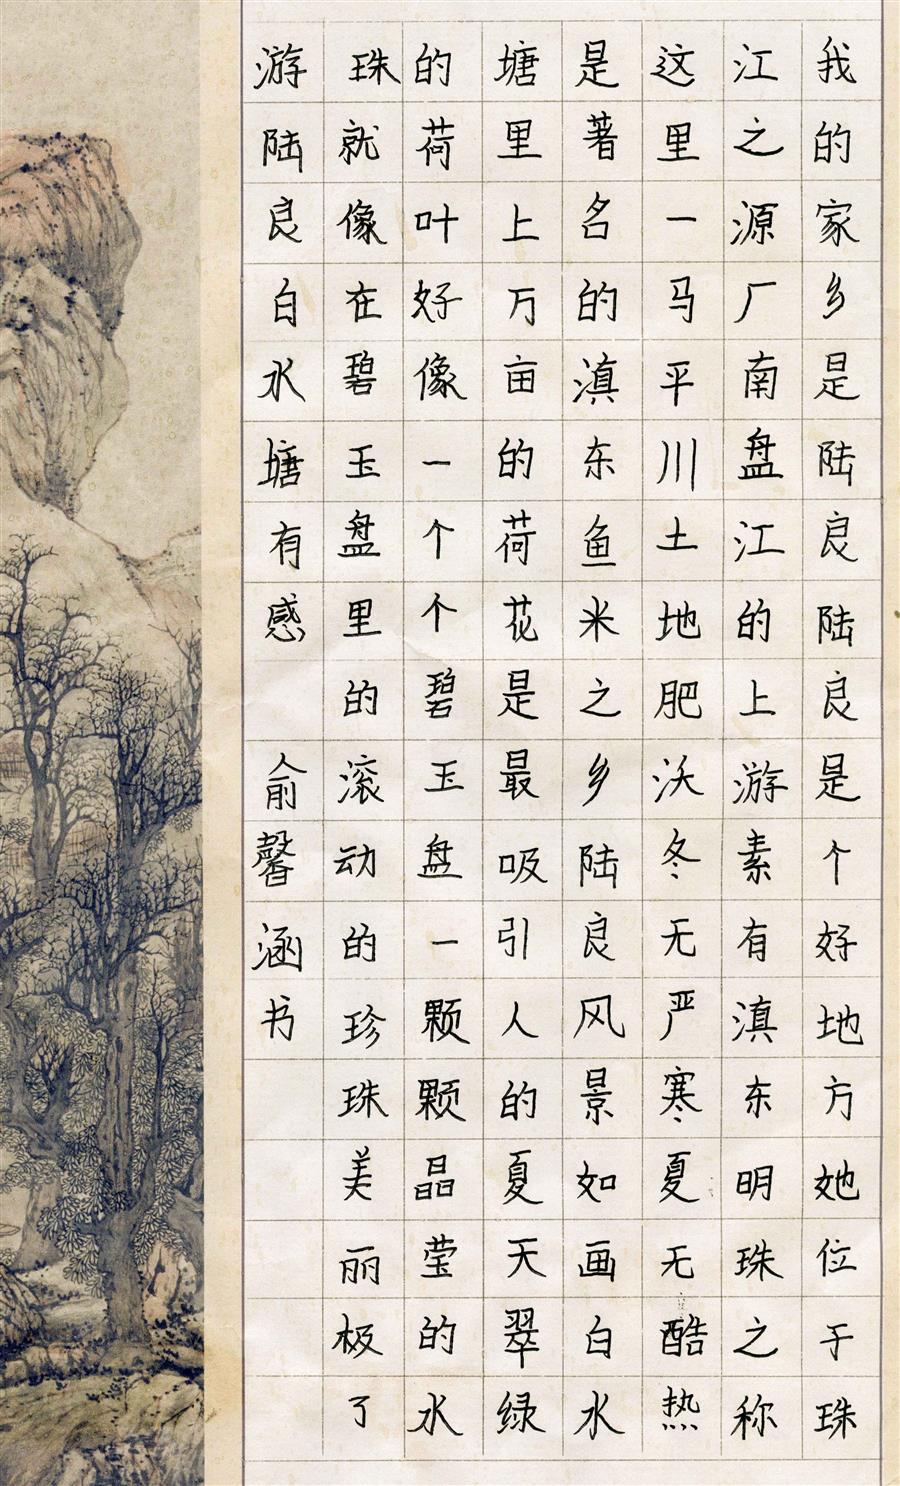 我的家乡是陆良陆良是个好地方她位于珠
江之源厂南盘江的上游素有滇东明珠之称
这里一马平川土地肥沃冬无严寒夏无酷热
是著名的滇东鱼米之乡陆良风景如画白水
塘里上万亩的荷花是最吸引人的夏天翠绿
的荷叶好像一个个碧玉盘一颗颗晶莹的水
珠就像在碧玉盘里的滚动的珍珠美丽极了
游陆良白水塘有感 俞馨涵书